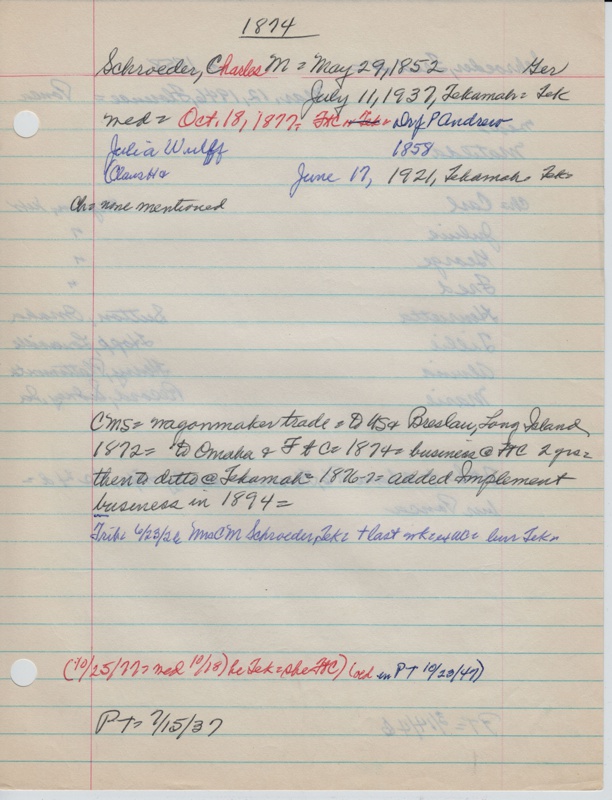 1874
Schroeder, Charles M = May 29, 1852 Ger
July 11, 1937, Tekamah = Tek
med = Oct. 18, 1877 = FtC = Tek = D of P Andrew
Julia Wulff 1858
Claus H & June 17, 1921, Tekamah = Tek =
Ch = none mentioned
CMS = wagonmaker trade = to US & Breslau, Long Island
1872 = to Omaha & Ft C = 1874 = business @ FtC 2 yrs =
then to ditto @ Tekamah = 1876-7 = added Implement
business in 1894 =
Trib = 6/23/2 Mrs CM Schroeder, Tek = + last wk = = bur Tek =
(10/25/77 = med 10/18) he Tek = she FtC) (in PT 10/23/47)
PT = 7/15/37